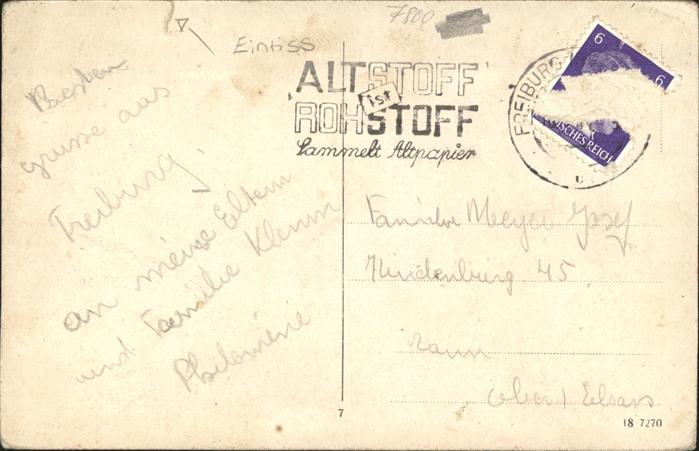 7800
Einriss
ALTSTOFF
ist
ROHSTOFF
Sammelt Altpapier
FREIBURG
6 6
DEUTSCHES REICH
c
Besten
grüsse aus
Freiburg.
an meine Eltern
und Familie Klemm
Philomene
Familie Meyer Josef
Hindenburg 45
Tann
(Ober) Elsass
7
18 7270